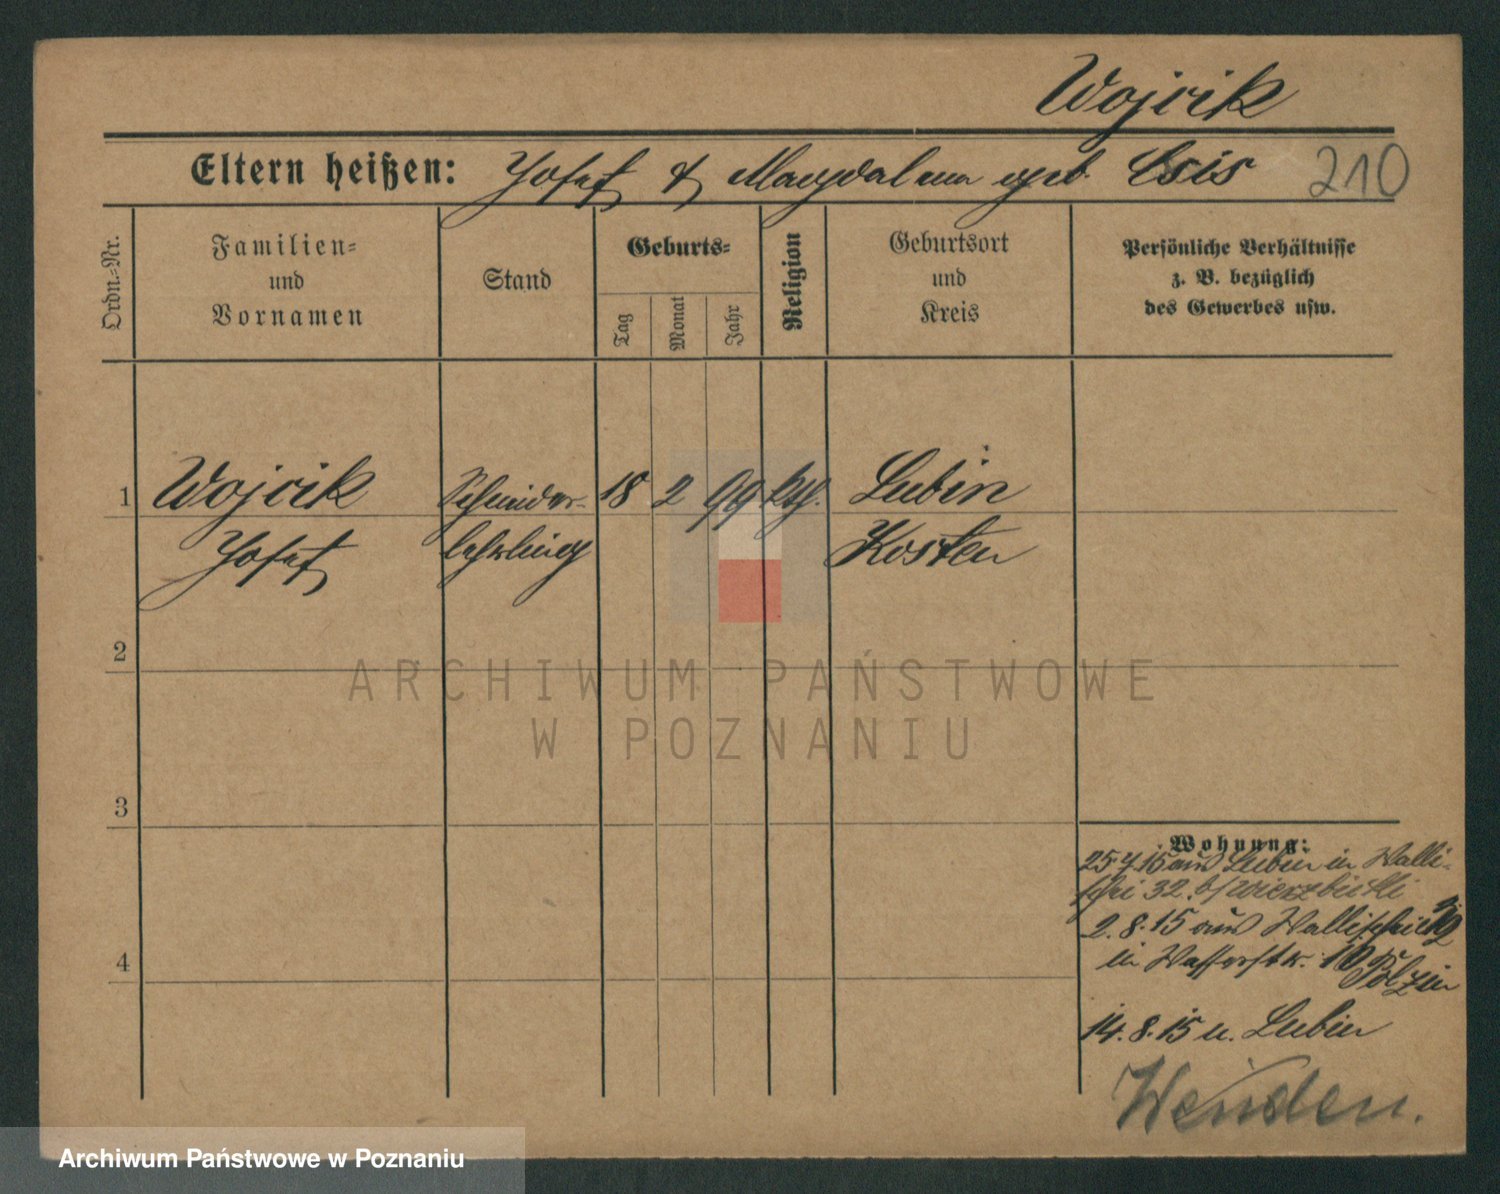 Wojcik
Eltern heißen: Josef & Magdalena geb. Csis 210
Ordn.-Nr.
Familien-
und
Vornamen
Stand
Geburts-
Tag
Monat
Jahr
Religion
Geburtsort
und
Kreis
Persönliche Verhältnisse
z. B. bezüglich
des Gewerbes usw.
1 Wojcik Schneider- 18 2 99 kth. Lubin
Josef lehrling Kosten
2
3
4
Wohnung:
25.7.15 aus Lubin in Walli-
schei 32. b/ Wierzbicki
2.8.15 aus Wallischei 32
in Wasserstr. 10 Polzin
14.8.15 n. Lubin
Wenden.
ARCHIWUM PAŃSTWOWE
W POZNANIU
Archiwum Państwowe w Poznaniu